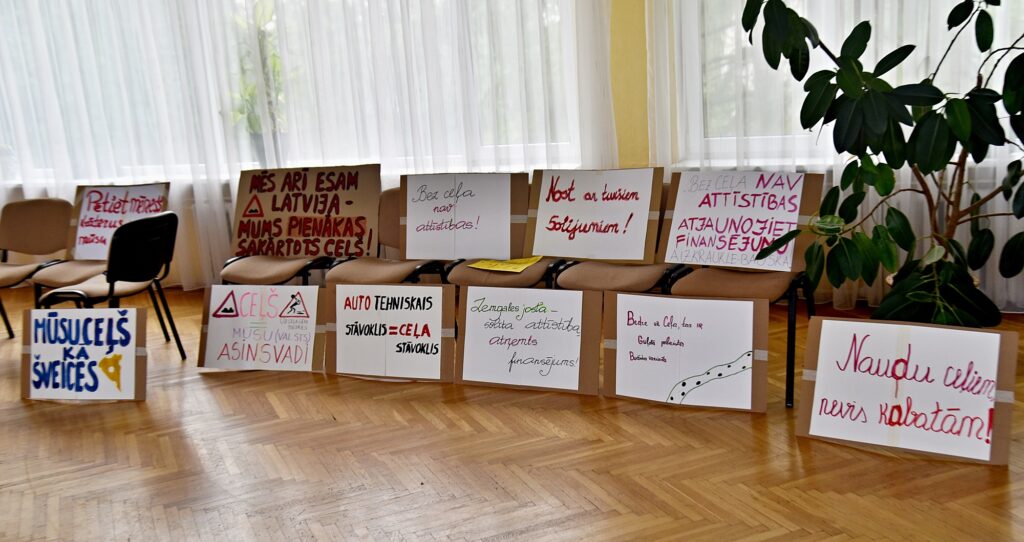 Petiet mēness
krāterus
mūsu
MĒS ARĪ ESAM
LATVIJA-
MUMS PIENĀKAS
SAKĀRTOTS CEĻŠ!
Bez ceļa
nav
attīstības!
Nost ar tukšiem
Solījumiem!
BEZ CEĻA NAV
ATTĪSTĪBAS
ATJAUNOJIET
FINANSĒJUMU
AIZKRAUKLE-BAUSKA
MŪSU CEĻŠ
KĀ
ŠVEICĒS
CEĻŠ
=
MŪSU (VALSTS)
ASINSVADI
AUTO TEHNISKAIS
STĀVOKLIS = CEĻA
STĀVOKLIS
Zemgales josta -
saita attīstībā,
atņemts
finansējums!
Bedre uz Ceļa, tas ir
Naudu ceļiem,
nevis kabatām!